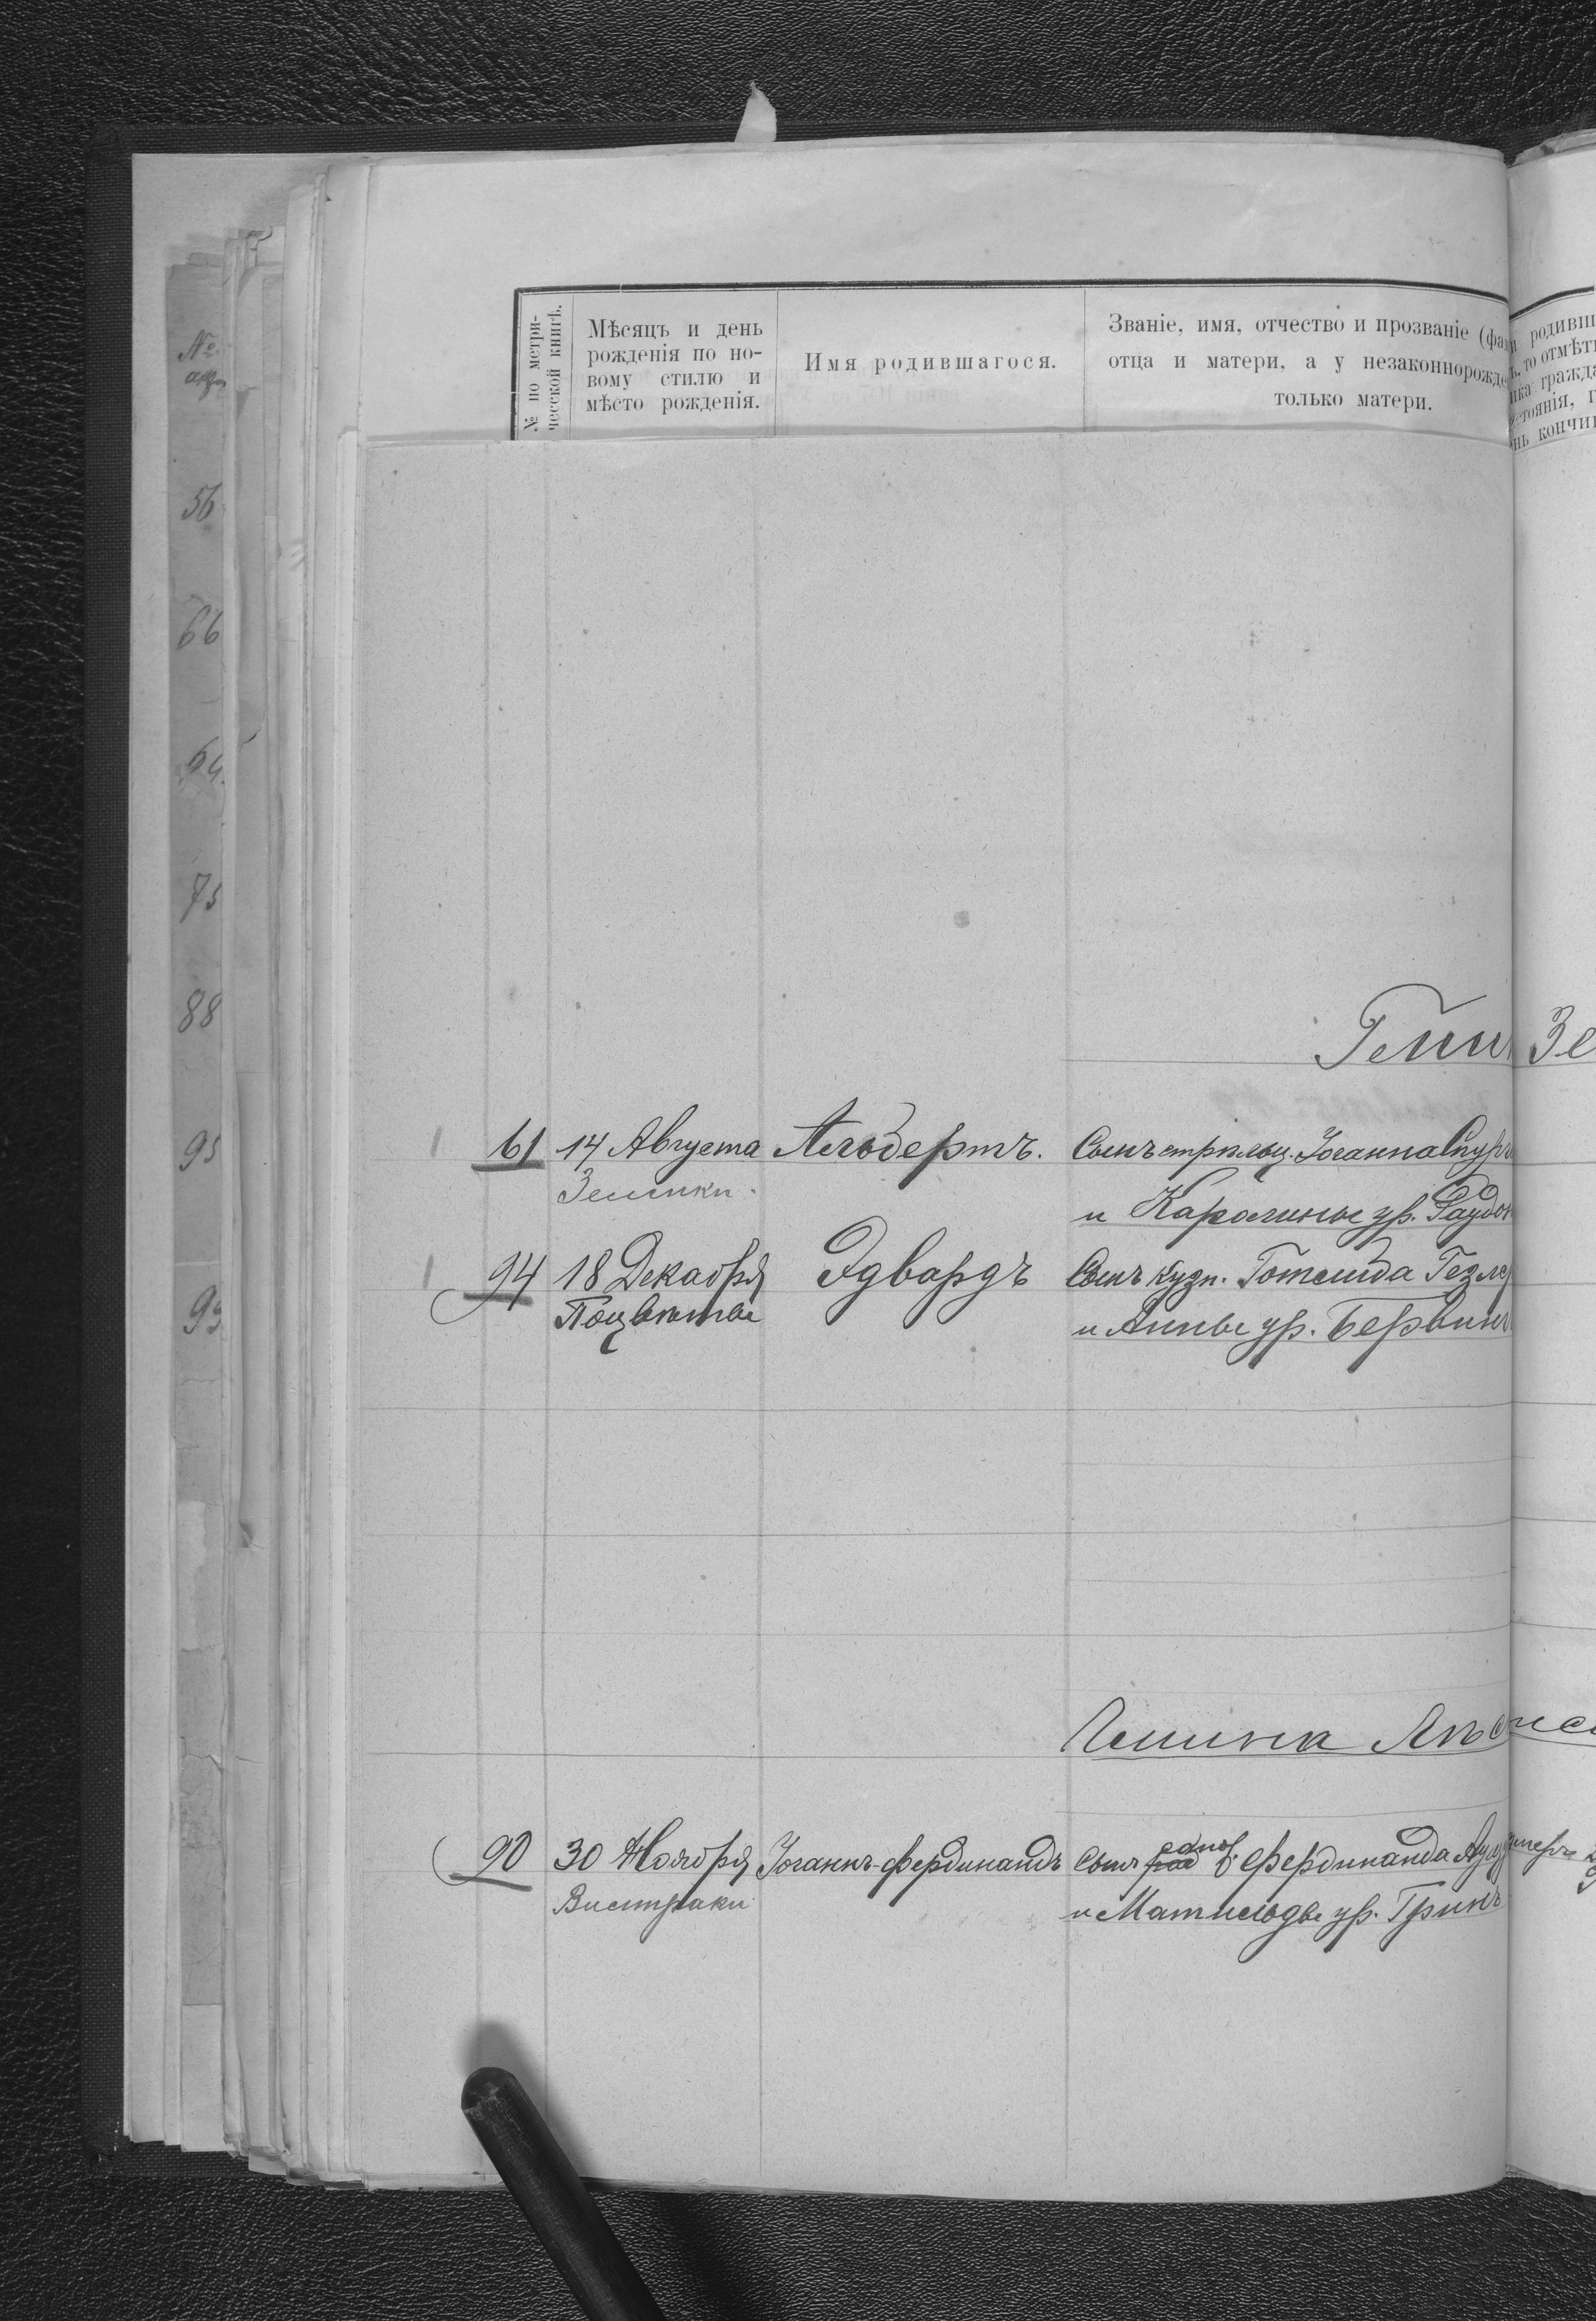 № по метри-
ческой книгѣ.
Мѣсяцъ и день
рожденія по но-
вому стилю и
мѣсто рожденія.
Имя родившагося.
Званіе, имя, отчество и прозваніе (фам
отца и матери, а у незаконнорожде
только матери.
и родивш
то отмѣт
гражда
стоянія, г
нь кончи
№
56
66
75
88
95
Гмин
Зе
61 14 Августа Альбертъ. Сынъ стрѣльц. Іоганна Спур
Земики.
и Каролины ур. Раудон
94 18 Декабря Эдвардъ Сынъ кузн. Готлиба Гезле
Поцвѣты
и Анны ур. Бервин
Гмина
90 30 Ноября Іоганнъ-Фердинандъ Сынъ раб однод. Фердинанда
Вистраки
и Матильды ур. Гринъ